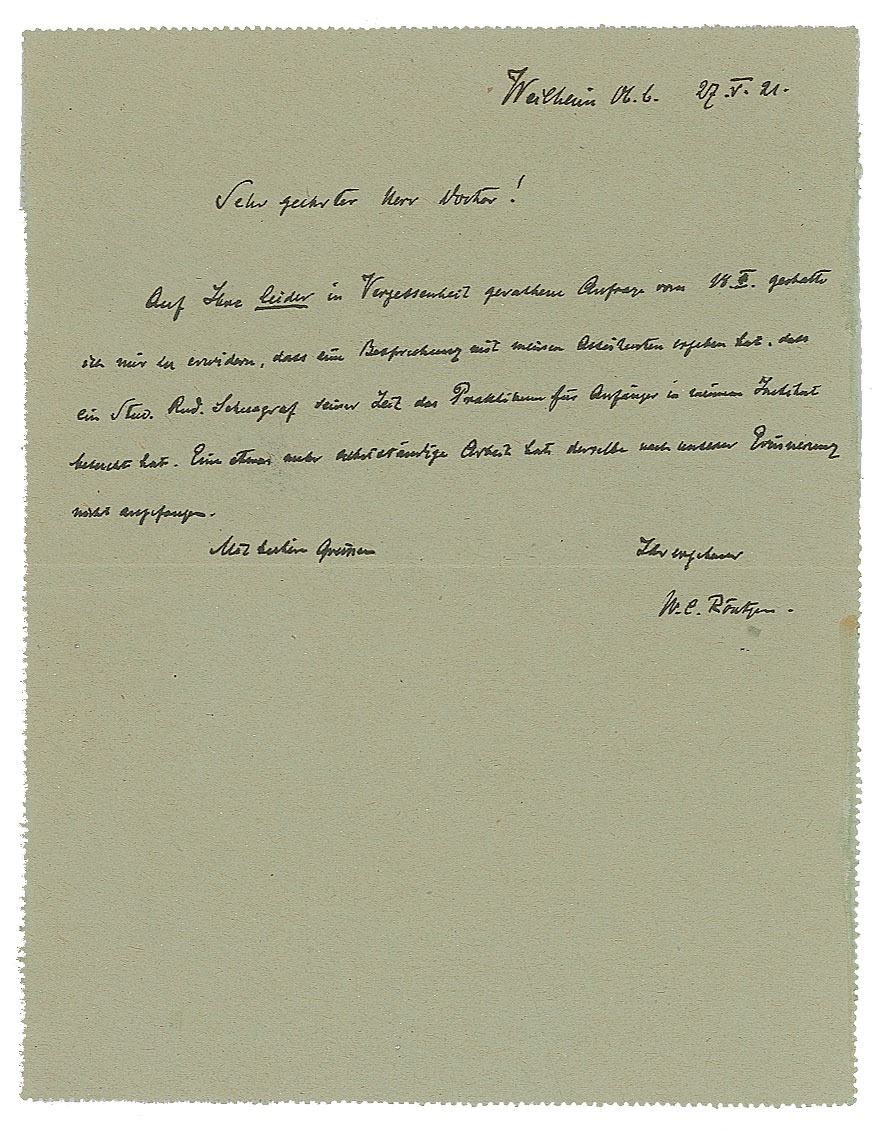 Weilheim Ob. b. 27. V. 21.
Sehr geehrter Herr Doctor!
Auf Ihre leider in Vergessenheit gerathene Anfrage vom 18. gestatte
ich mir zu erwidern, dass eine Besprechung mit meinen Assistenten ergeben hat, dass
ein Stud. Rud. seiner Zeit das Praktikum für Anfänger in meinem Institut
besucht hat. Eine etwas mehr selbstständige Arbeit hat derselbe nach unserer Erinnerung
nicht angefangen.
Mit besten Grüssen Ihr ergebener
W. C. Röntgen.